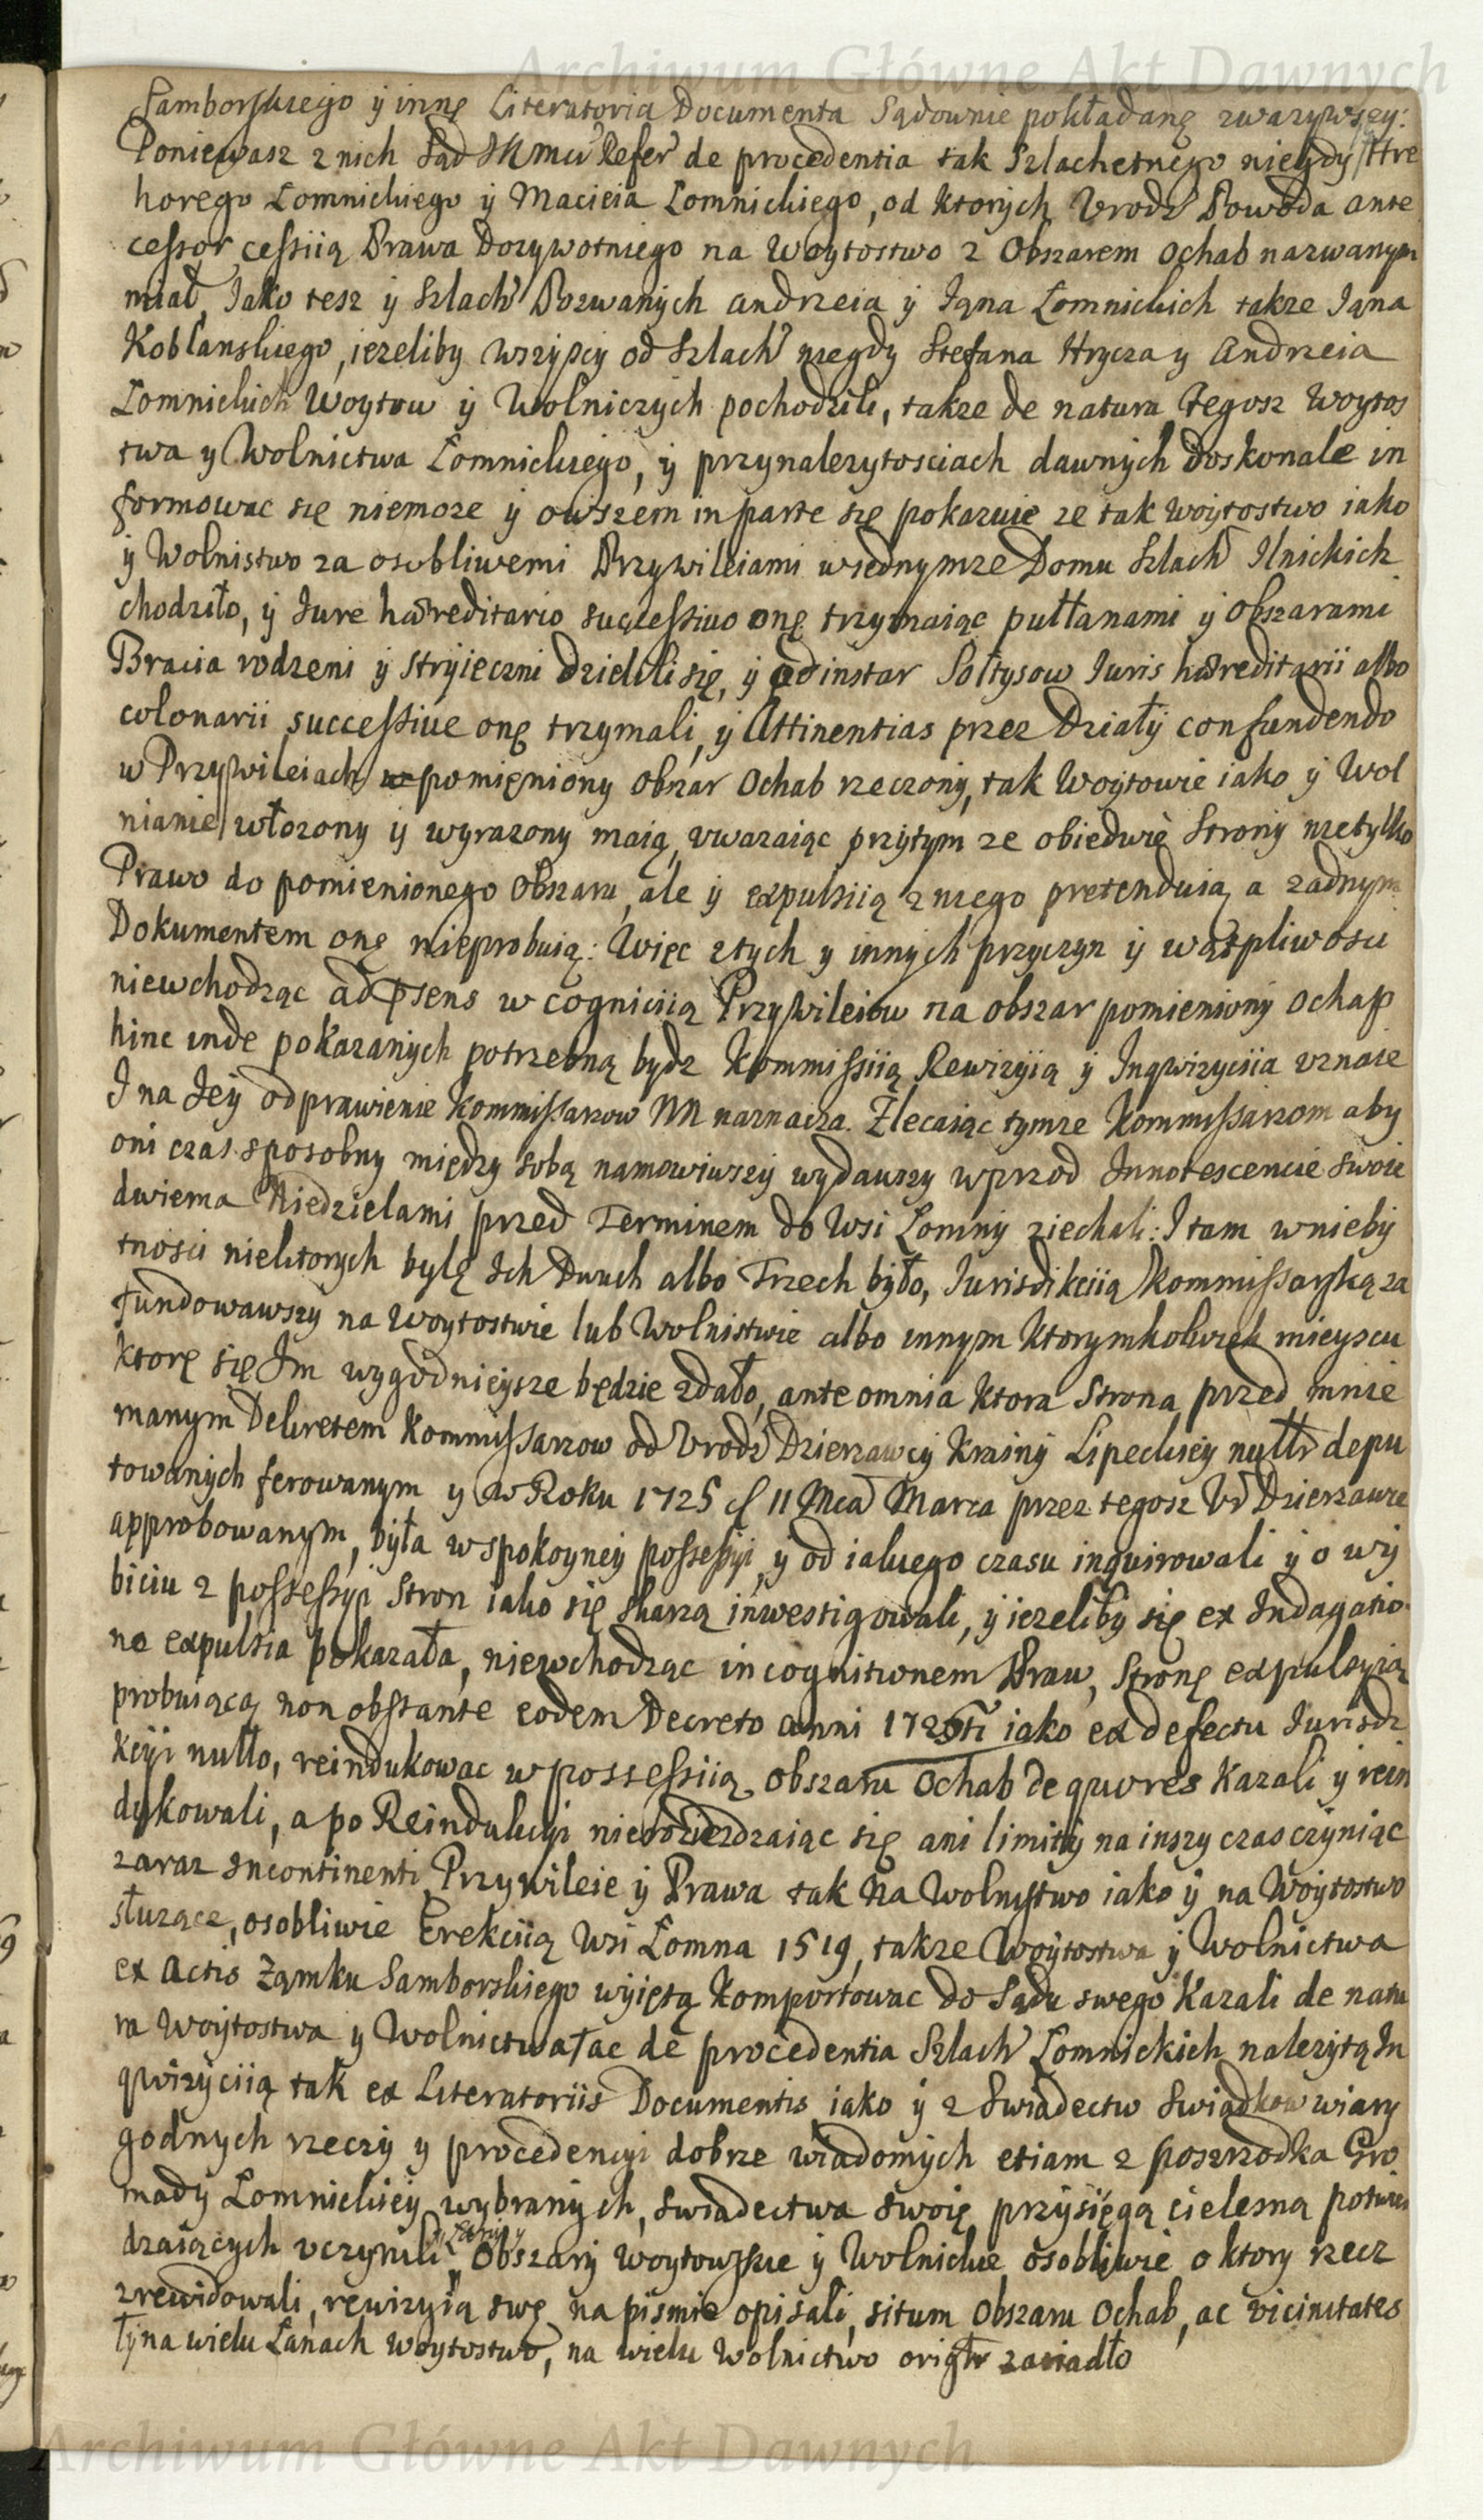 Archiwum Główne Akt Dawnych
Samborskiego y innę Literatoria Documenta Sądownie pokładanę zwazywszy:
Poniewasz z nich Sąd JKmci Refer de procedentia tak Szlachetnego niegdy Hre
horego Łomnickiego ÿ Macieia Łomnickiego, od ktorych Vrodz Powoda ante
cessor cessiią Prawa Dozywotniego na Woytostwo z Obszarem Ochab nazwanym
miał, Jako tesz ÿ Szlach Pozwanych Andrzeia ÿ Jąna Łomnickich takze Jąna
Koblanskiego, iezeliby wszÿscÿ od Szlach niegdy Stefana Hrycza y Andrzeia
Łomnickich Woytow ÿ Wolniczych pochodzili, takze de natura tegosz Woytos
twa y Wolnictwa Łomnickiego, ÿ przynalezytosciach dawnÿch doskonale in
formowac się niemoze ÿ owszem in parte się pokazuie ze tak woÿtostwo iako
ÿ Wolnistwo za osobliwemi Przywileiami w iednymze Domu Szlach Ilnickich
chodziło, ÿ Jure hæreditario successiuo onę trzymaiąc pułłanami ÿ obszarami
Bracia rodzeni ÿ stryieczni dzielili się, ÿ ad instar Sołtysow Juris hæreditarii albo
colonarii successiue onę trzymali, ÿ Attinentias przez Działÿ confundendo
w Przywileiach pomięniony obszar Ochab rzeczonÿ, tak Woytowie iako ÿ Wol
nianie włozony ÿ wyrazony maią, vwazaiąc przÿtym ze obiedwie Stronÿ nietylko
Prawo do pomienionego Obszaru, ale ÿ expulsiią z niego pretenduią a zadnym
Dokumentem onę nieprobuią: Więc z tych y innych przyczyn ÿ wątpliwosci
niewchodząc ad psens w cogniciią Przywileiow na obszar pomienionÿ Ochap
hinc inde pokazanÿch potrzebną bydz Kommissiią Rewizÿią ÿ Inqwizyciia vznaie
I na Jeÿ odprawienie Kommissarzow NN naznacza. Zlecaiąc tymze Kommissarzom aby
oni czas sposobny między sobą namowiwszÿ wydawszy wprzod Innotescencie swoie
dwiema Niedzielami przed Terminem do Wsi Łomnÿ ziechali: I tam w niebÿ
tnosci niektorych bylę Ich Dwuch albo Trzech było, Jurisdikciią Kommissarską za
fundowawszÿ na Woytostwie lub Wolnistwie albo innym ktorymkolwiek mieyscu
ktorę się Im wygodnieysze będzie zdało, ante omnia ktora Strona przed mnie
manym Dekretem Kommissarzow od Vrodz Dzierzawcÿ Krainÿ Lipeckieÿ nullr depu
towanÿch ferowanym y w Roku 1725 d 11 Mca Marca przez tegosz Vr Dzierzawce
approbowanym, była w spokoyneÿ possessyi, ÿ od iakiego czasu inquirowali ÿ o wÿ
biciu z possessÿi Stron iako się skarzą inwestigowali, ÿ iezeliby się ex Indagatio
ne expulsia pokazała, niewchodząc in cognitionem Praw, Stronę expulsyią
probuiącą non obstante eodem Decreto anni 1725ti iako ex defectu Jurisdi
kcÿi nullo, reindukowac w possessiią obszaru Ochab de quo res kazali ÿ rein
dukowali, a po Reindukcÿi nierozieżdzaiąc się ani limitÿ na inszy czas czÿniąc
zaraz Incontinenti Przywileie ÿ Prawa tak na Wolnistwo iako ÿ na Woÿtostwo
słuzące, osobliwie Erekciią Wsi Łomna 1519, takze Woÿtostwa ÿ Wolnictwa
ex Actis Ząmku Samborskiego wÿiętą Komportowac do Sądu swego kazali de natu
ra Woÿtostwa y Wolnictwa ac de procedentia Szlach Łomnickich nalezytą In
qwizÿciią tak ex Literatoriis Documentis iako ÿ z Swiadectw Swiądkow wiarÿ
godnych rzeczÿ y procedencyi dobrze wiadomÿch etiam z poszrodka Gro
mady Łomnickieÿ wybranÿch, swiadectwa swoię przÿsięgą cielesną potwier
dzaiącÿch vczynili, Obszarÿ Woytowskie ÿ Wolnickie osobliwie o ktory rzecz
zrewidowali, rewizÿią swę na pismie opisali, situm Obszaru Ochab, ac vicinitates
tÿ na wielu Łanach Woytostwo, na wielu Wolnictwo origtr zasiadło
Archiwum Główne Akt Dawnych